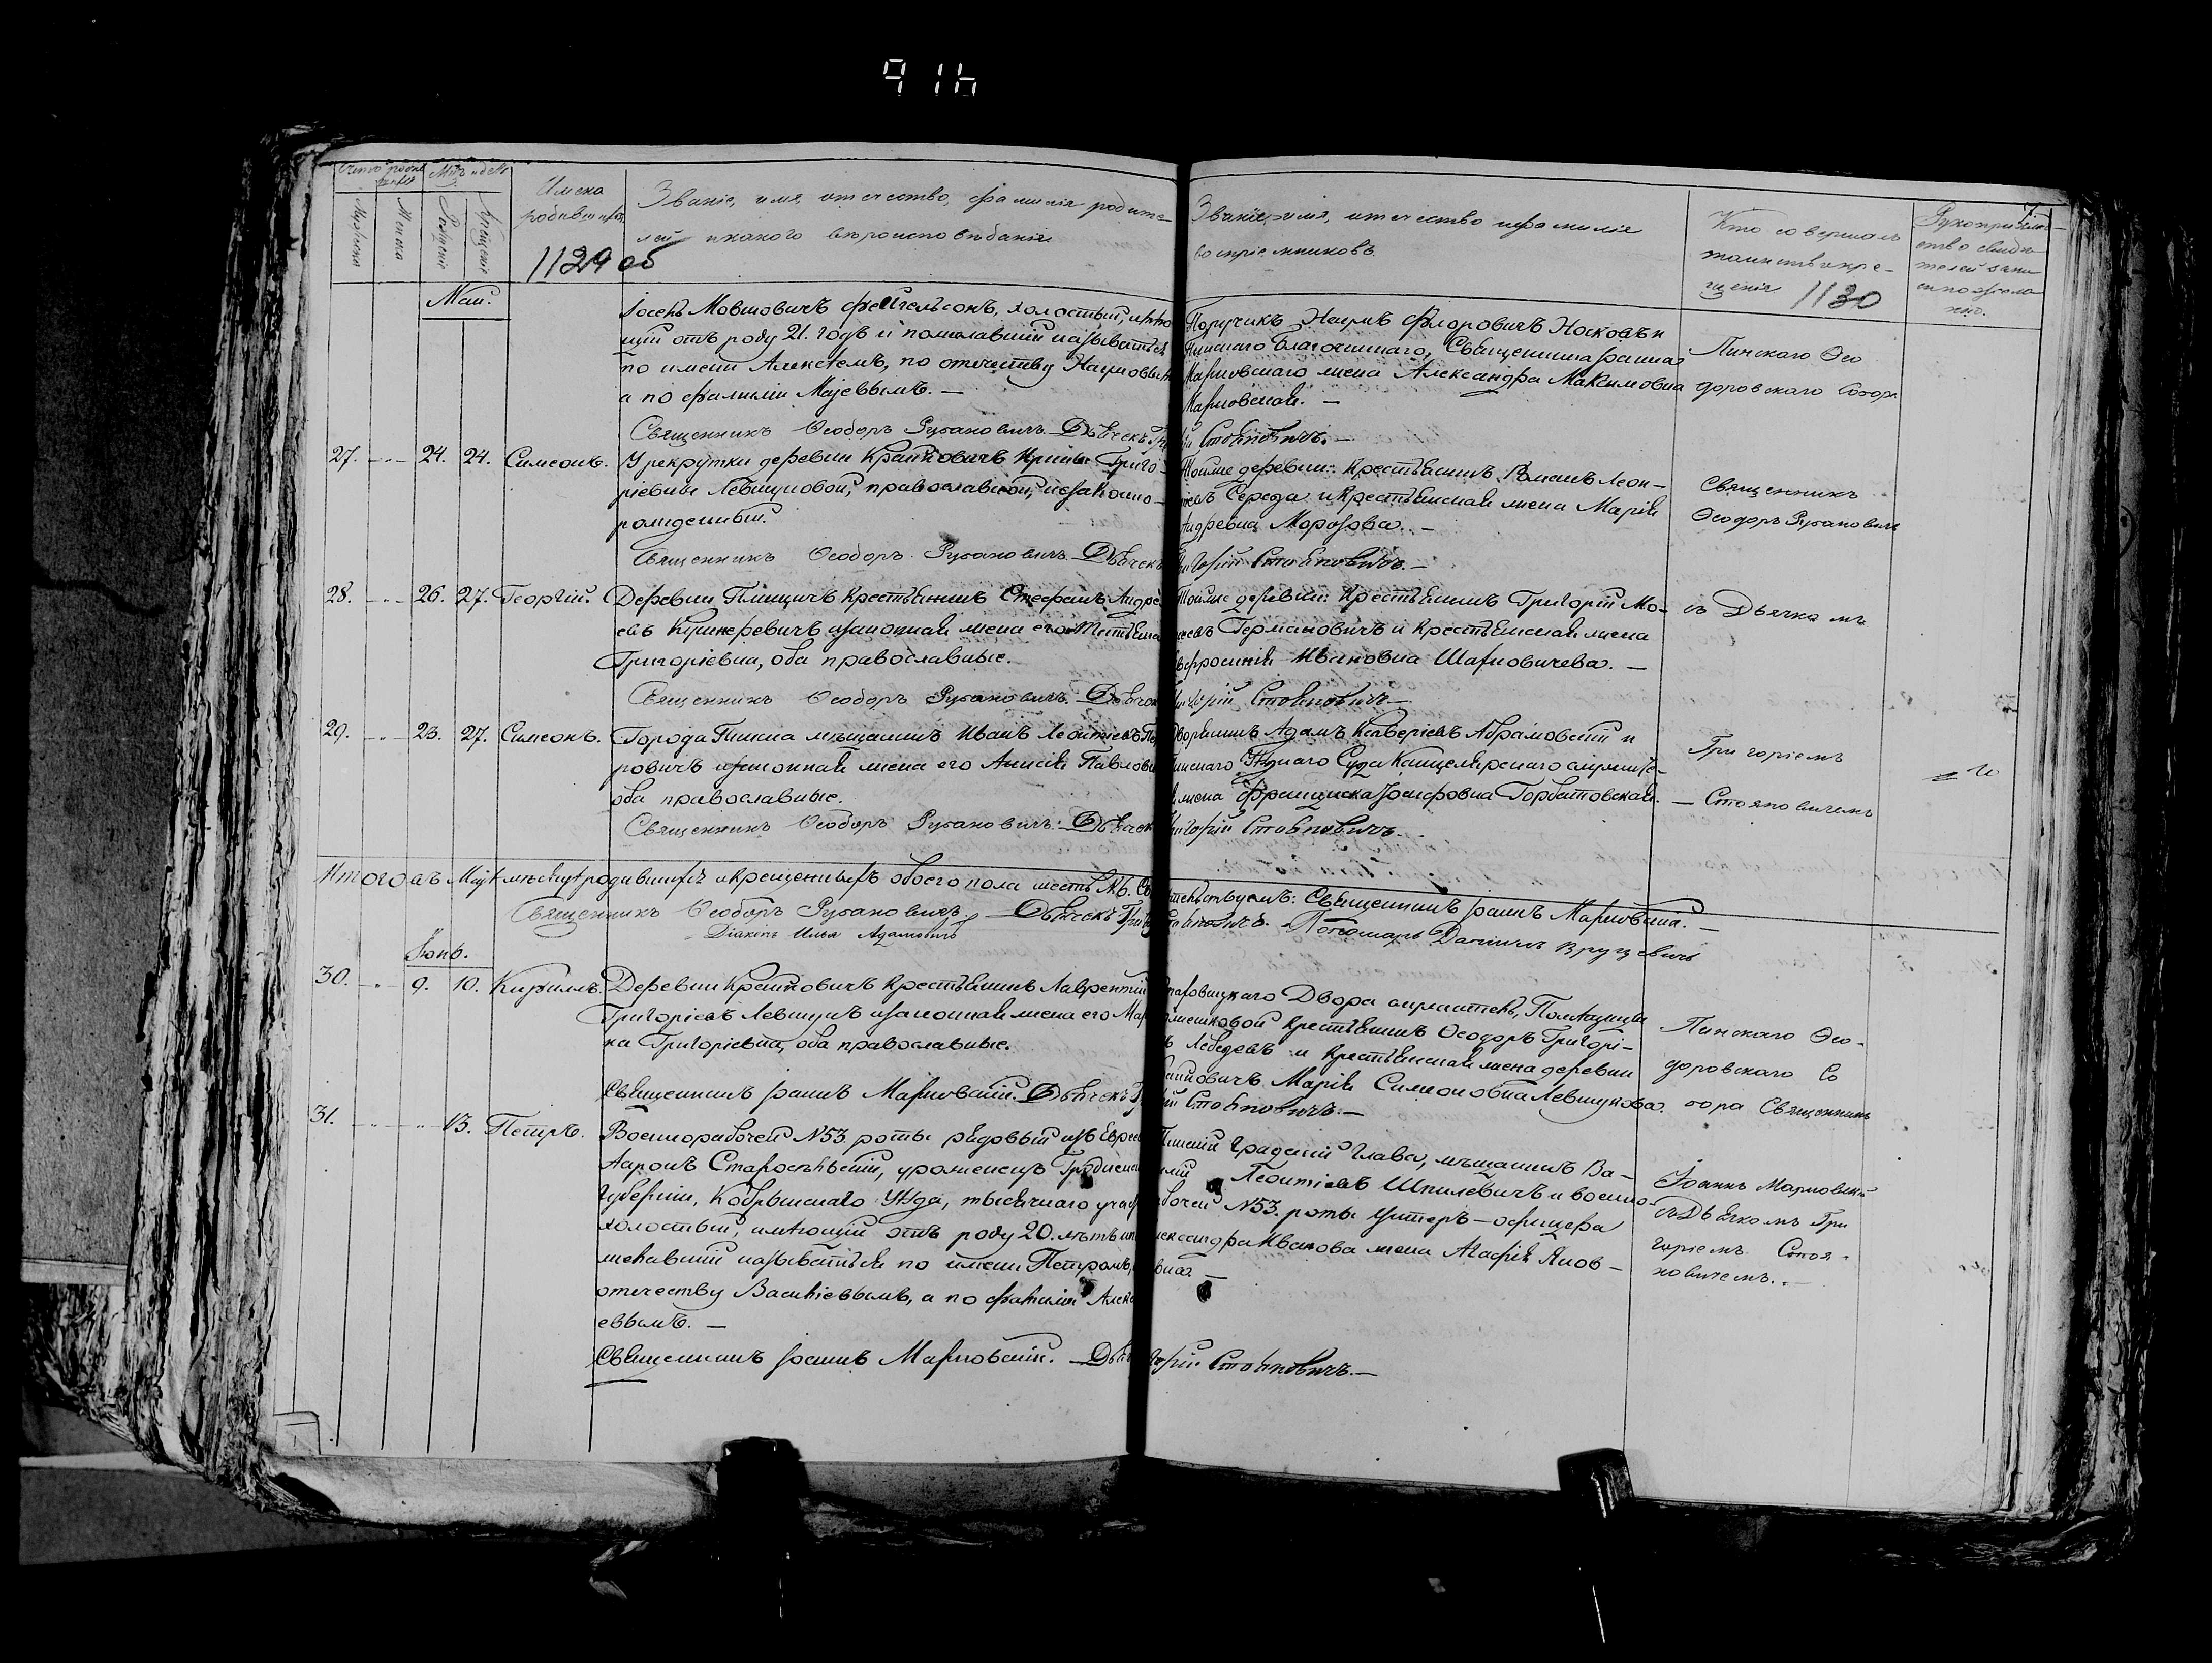 916
Счетъ родив
шихся
Мѣц. и день
Мужеска
Женска
Рожденія
Крещенія
Имена
родившихся
1129 об
Званіе, имя, отечество, фамилія родите-
лей и какого вѣроисповѣданія
Званіе, имя, отечество и фамилія
воспріемниковъ.
Кто совершалъ
таинство кре-
щенія 1130
Рукоприклад-
ство свидѣ-
телей записи
по жела-
нію.
7
Маи.
Іосель Мовшовичъ Фейгельсонъ, холостый, имѣю
щій отъ роду 21. годъ и пожелавшій называться
по имени Алексѣемъ, по отечеству Наумовымъ
а по фамиліи Маіевымъ. —
Священникъ Ѳеодоръ Рубановичъ. Дьячекъ Гри
Поручикъ Наумъ Флоровичъ Носковъ и
Пинскаго Благочиннаго, Священника Іоанна
Марковскаго жена Александра Максимовна
Марковская. —
й Стояновичъ. —
Пинскаго Ѳео
доровскаго Собора
27. — 24. 24. Симеонъ.
У рекрутки деревни Крайновичъ Ирины Григо-
ріевны Левшуновой, православной, незаконно-
рожденный.
Священникъ Ѳеодоръ Рубановичъ. Дьячекъ
Тойже деревни: крестьянинъ Романъ Леон-
тьевъ Середа и крестьянская жена Марія
Андреевна Морозова. —
Григорій Стояновичъ. —
Священникъ
Ѳеодоръ Рубановичъ
28. — 26. 27. Георгій.
Деревни Плещицъ крестьянинъ Стефанъ Андре
евъ и законная жена его Татьяна
Григоріевна, оба православные.
Священникъ Ѳеодоръ Рубановичъ. Дьячекъ
Тойже деревни: крестьянинъ Григорій Мо-
исеевъ Германовичъ и крестьянская жена
Евфросинія Ивановна Шарковичева. —
Григорій Стояновичъ —
съ Дьячкомъ
29. — 23. 27. Симеонъ.
Города Пинска мѣщанинъ Иванъ Леонтіевъ Пе
ровичъ и законная жена его Анисія Павлов
оба православные.
Священникъ Ѳеодоръ Рубановичъ. Дьячек
Дворянинъ Адамъ Ксаверіевъ Абрамовскій и
Пинскаго Уѣзднаго Суда Канцелярскаго служите-
ля жена Францишка Іосифовна Горбатовская.
Григорій Стояновичъ.
Григоріемъ
— Стояновичемъ
Итого въ Маѣ мѣсяцѣ родившихся и крещенныхъ обоего пола шесть №6. Св
идѣтельствуемъ: Священникъ Іоаннъ Марковскій. —
Священникъ Ѳеодоръ Рубановичъ. Дьячекъ Григо
Стояновичъ. Пономарь Даніилъ Вруцевичъ
Діаконъ Илья Адамовичъ
Іюнь.
30. — 9. 10. Кириллъ.
Деревни Крайновичъ крестьянинъ Лаврентій
Григоріевъ Левшунъ и законная жена его Мар
на Григоріевна, оба православные.
Священникъ Іоаннъ Марковскій. Дьячекъ Г
Двора служитель, Помѣщицы
крестьянинъ Ѳеодоръ Григорі-
евъ Лебедевъ и крестьянская жена деревни
Крайновичъ Марія Симеоновна Левшунова.
ій Стояновичъ. —
Пинскаго Ѳео-
доровскаго Со
бора Священникъ
31. — — 13. Петръ.
Военнорабочей №53. роты рядовый изъ Евреевъ
Ааронъ Старосельскій, уроженецъ Гродненс
Губерніи, Кобрынскаго Уѣзда, тысячнаго участ
холостый, имѣющій отъ роду 20. лѣтъ и по
желавшій называться по имени Петромъ,
отечеству Васильевымъ, а по фамиліи Алекс
евымъ. —
Священникъ Іоаннъ Марковскій. — Дьяч
Пинскій Градскій Глава, мѣщанинъ Ва-
силій Леонтіевъ Шпилевичъ и военно-
рабочей №53. роты унтеръ-офицера
Александра Иванова жена Агафія Яков-
евна —
горій Стояновичъ. —
Іоаннъ Марковскій
съ Дьячкомъ Гри
горіемъ Стоя-
новичемъ. —